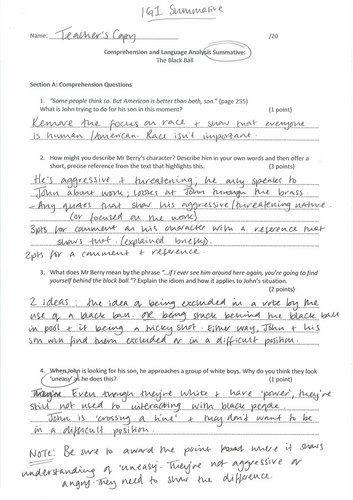 IGI Summative
Name: Teacher's Copy /20
Comprehension and Language Analysis Summative:
The Black Ball
Section A: Comprehension Questions
1. "Some people think so. But American is better than both, son." (page 255)
What is John trying to do for his son in this moment? (1 point)
Remove the focus on race + show that everyone
is human / American. Race isn't important.
2. How might you describe Mr Berry's character? Describe him in your own words and then offer a
short, precise reference from the text that highlights this. (3 points)
He's aggressive + threatening; he only speaks to
John about work; looks at John through the brass.
- Any quotes that show his aggressive/threatening nature
(or focused on the work)
3pts for comment on his character with a reference that
shows that. (explained briefly).
2pts for a comment + reference.
3. What does Mr Berry mean by the phrase "...if I ever see him around here again, you're going to find
yourself behind the black ball."? Explain the idiom and how it applies to John's situation.
(2 points)
2 ideas: the idea of being excluded in a vote by the
use of a black ball. OR being stuck behind the black ball
in pool + it being a tricky shot. Either way, John + his
son will find them excluded or in a difficult position.
4. When John is looking for his son, he approaches a group of white boys. Why do you think they look
'uneasy' as he does this? (1 point)
They're Even though they're white + have 'power', they're
still not used to interacting with black people.
John is 'crossing a line' + they don't want to be
in a difficult position.
NOTE: Be sure to award the point where it shows
understanding of 'uneasy'. They're not aggressive or
angry. They need to show the difference.